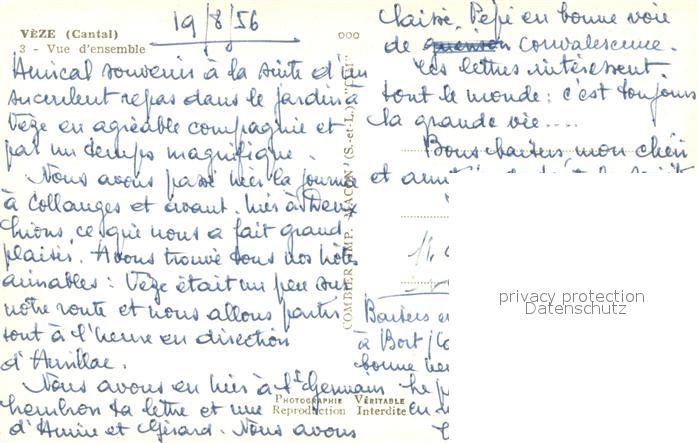 VÈZE (Cantal)
3 - Vue d'ensemble
19/8/56
Amical souvenir à la suite d'un
succulent repas dans le jardin à
Vèze en agréable compagnie et
par un temps magnifique.
Nous avons passé hier la journée
à Collanges et avant-hier à Deux
Chions, ce que nous a fait grand
plaisir. Avons trouvé tous nos hôtes
aimables : Vèze était un peu sur
notre route et nous allons partir
tout à l'heure en direction
d'Aurillac.
Nous avons eu hier à St Germain
Lembron ta lettre et une
d'Annie et Gérard. Nous avons
COMBIER IMP. MACON (S.-et-L.) "CIM"
PHOTOGRAPHIE VÉRITABLE
Reproduction Interdite
laissé Pépé en bonne voie
de convalescence.
Tes lettres intéressent
tout le monde : c'est toujours
la grande vie....
Bons baisers, mon chéri
et
Baisers
à Bort
bonne
privacy protection
Datenschutz